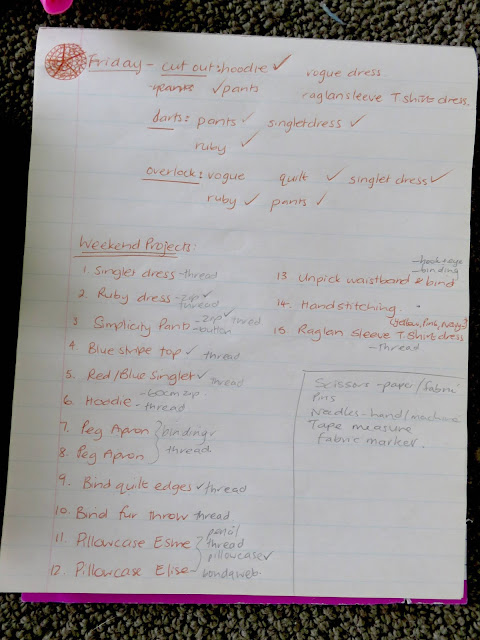 Friday - cut out: hoodie ✓ vogue dress
pants ✓ pants raglan sleeve T.shirt dress.
darts: pants ✓ singlet dress ✓
ruby ✓
overlock: vogue quilt ✓ singlet dress ✓
ruby ✓ pants ✓
Weekend Projects:
1. Singlet dress - thread
2. Ruby dress - zip ✓
thread
3. Simplicity Pants - zip ✓ thread
- button
4. Blue stripe top ✓ thread
5. Red/Blue Singlet ✓ thread
6. Hoodie - 60cm zip.
- thread
7. Peg Apron } binding
8. Peg Apron } thread.
9. Bind quilt edges ✓ thread
10. Bind fur throw thread
11. Pillowcase Esme pencil
thread
pillowcase ✓
12. Pillowcase Elise - bondaweb.
- hook & eye
- binding
13. Unpick waistband & bind
14. Handstitching.
(yellow, pink, navy)
15. Raglan Sleeve T.Shirt dress
- thread
Scissors - paper/fabric
Pins
Needles - hand/machine
Tape measure
fabric marker.